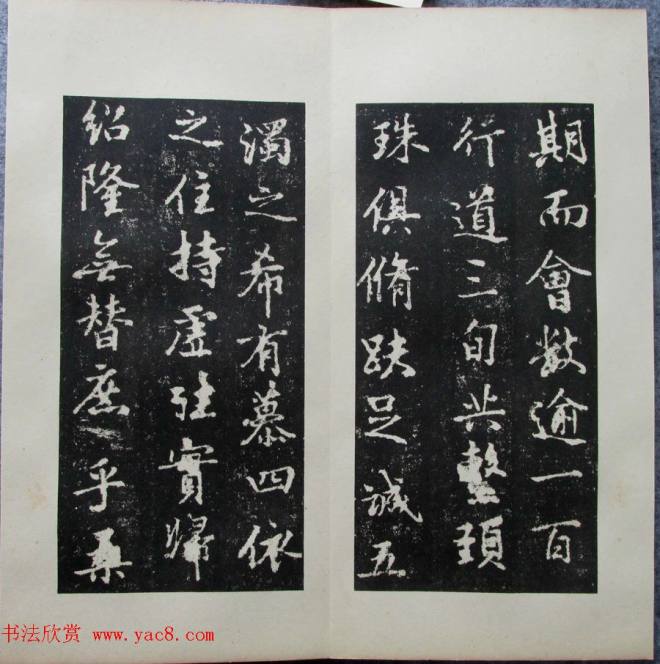 期而會數逾一百
行道三旬共整頚
珠俱脩趺足誠五
濁之希有慕四依
之住持虛往實歸
紹隆無替庶乎桑
书法欣赏 www.yac8.com